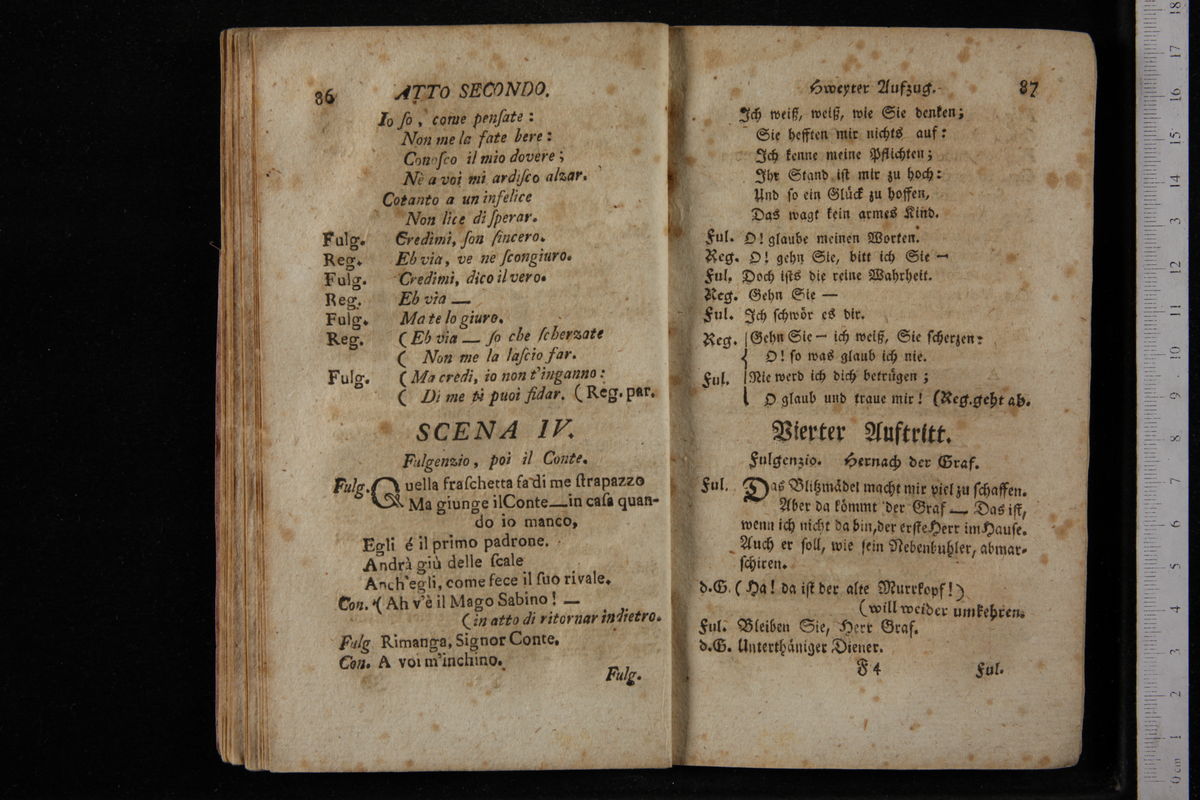 86 ATTO SECONDO.
Io ſo, come penſate:
Non me la fate bere:
Conoſco il mio dovere;
Nè a voi mi ardiſco alzar.
Cotanto a un infelice
Non lice di ſperar.
Fulg. Credimi, ſon ſincero.
Reg. Eh via, ve ne ſcongiuro.
Fulg. Credimi, dico il vero.
Reg. Eh via —
Fulg. Ma te lo giuro.
Reg. (Eh via — ſo che ſcherzate
( Non me la laſcio far.
Fulg. (Ma credi, io non t'inganno:
( Di me ti puoi fidar. (Reg. par.
SCENA IV.
Fulgenzio, poi il Conte.
Fulg. Quella fraſchetta fa di me ſtrapazzo
Ma giunge il Conte — in caſa quan-
do io manco,
Egli é il primo padrone.
Andrà giù delle ſcale
Anch'egli, come fece il ſuo rivale.
Con. (Ah v'è il Mago Sabino! —
(in atto di ritornar indietro.
Fulg Rimanga, Signor Conte.
Con. A voi m'inchino.
Fulg.
Zweyter Aufzug. 87
Ich weiß, weiß, wie Sie denken;
Sie hefften mir nichts auf:
Ich kenne meine Pflichten;
Ihr Stand iſt mir zu hoch:
Und ſo ein Glück zu hoffen,
Das wagt kein armes Kind.
Ful. O! glaube meinen Worten.
Reg. O! gehn Sie, bitt ich Sie —
Ful. Doch iſts die reine Wahrheit.
Reg. Gehn Sie —
Ful. Ich ſchwör es dir.
Reg. Gehn Sie — ich weiß, Sie ſcherzen:
O! ſo was glaub ich nie.
Ful. Nie werd ich dich betrügen;
O glaub und traue mir! (Reg. geht ab.
Vierter Auftritt.
Fulgenzio. Hernach der Graf.
Ful. Das Blitzmädel macht mir viel zu ſchaffen.
Aber da kömmt der Graf — Das iſt,
wenn ich nicht da bin, der erſte Herr im Hauſe.
Auch er ſoll, wie ſein Nebenbuhler, abmar-
ſchiren.
d.G. (Ha! da iſt der alte Murrkopf!)
(will weider umkehren.
Ful. Bleiben Sie, Herr Graf.
d.G. Unterthäniger Diener.
F 4 Ful.